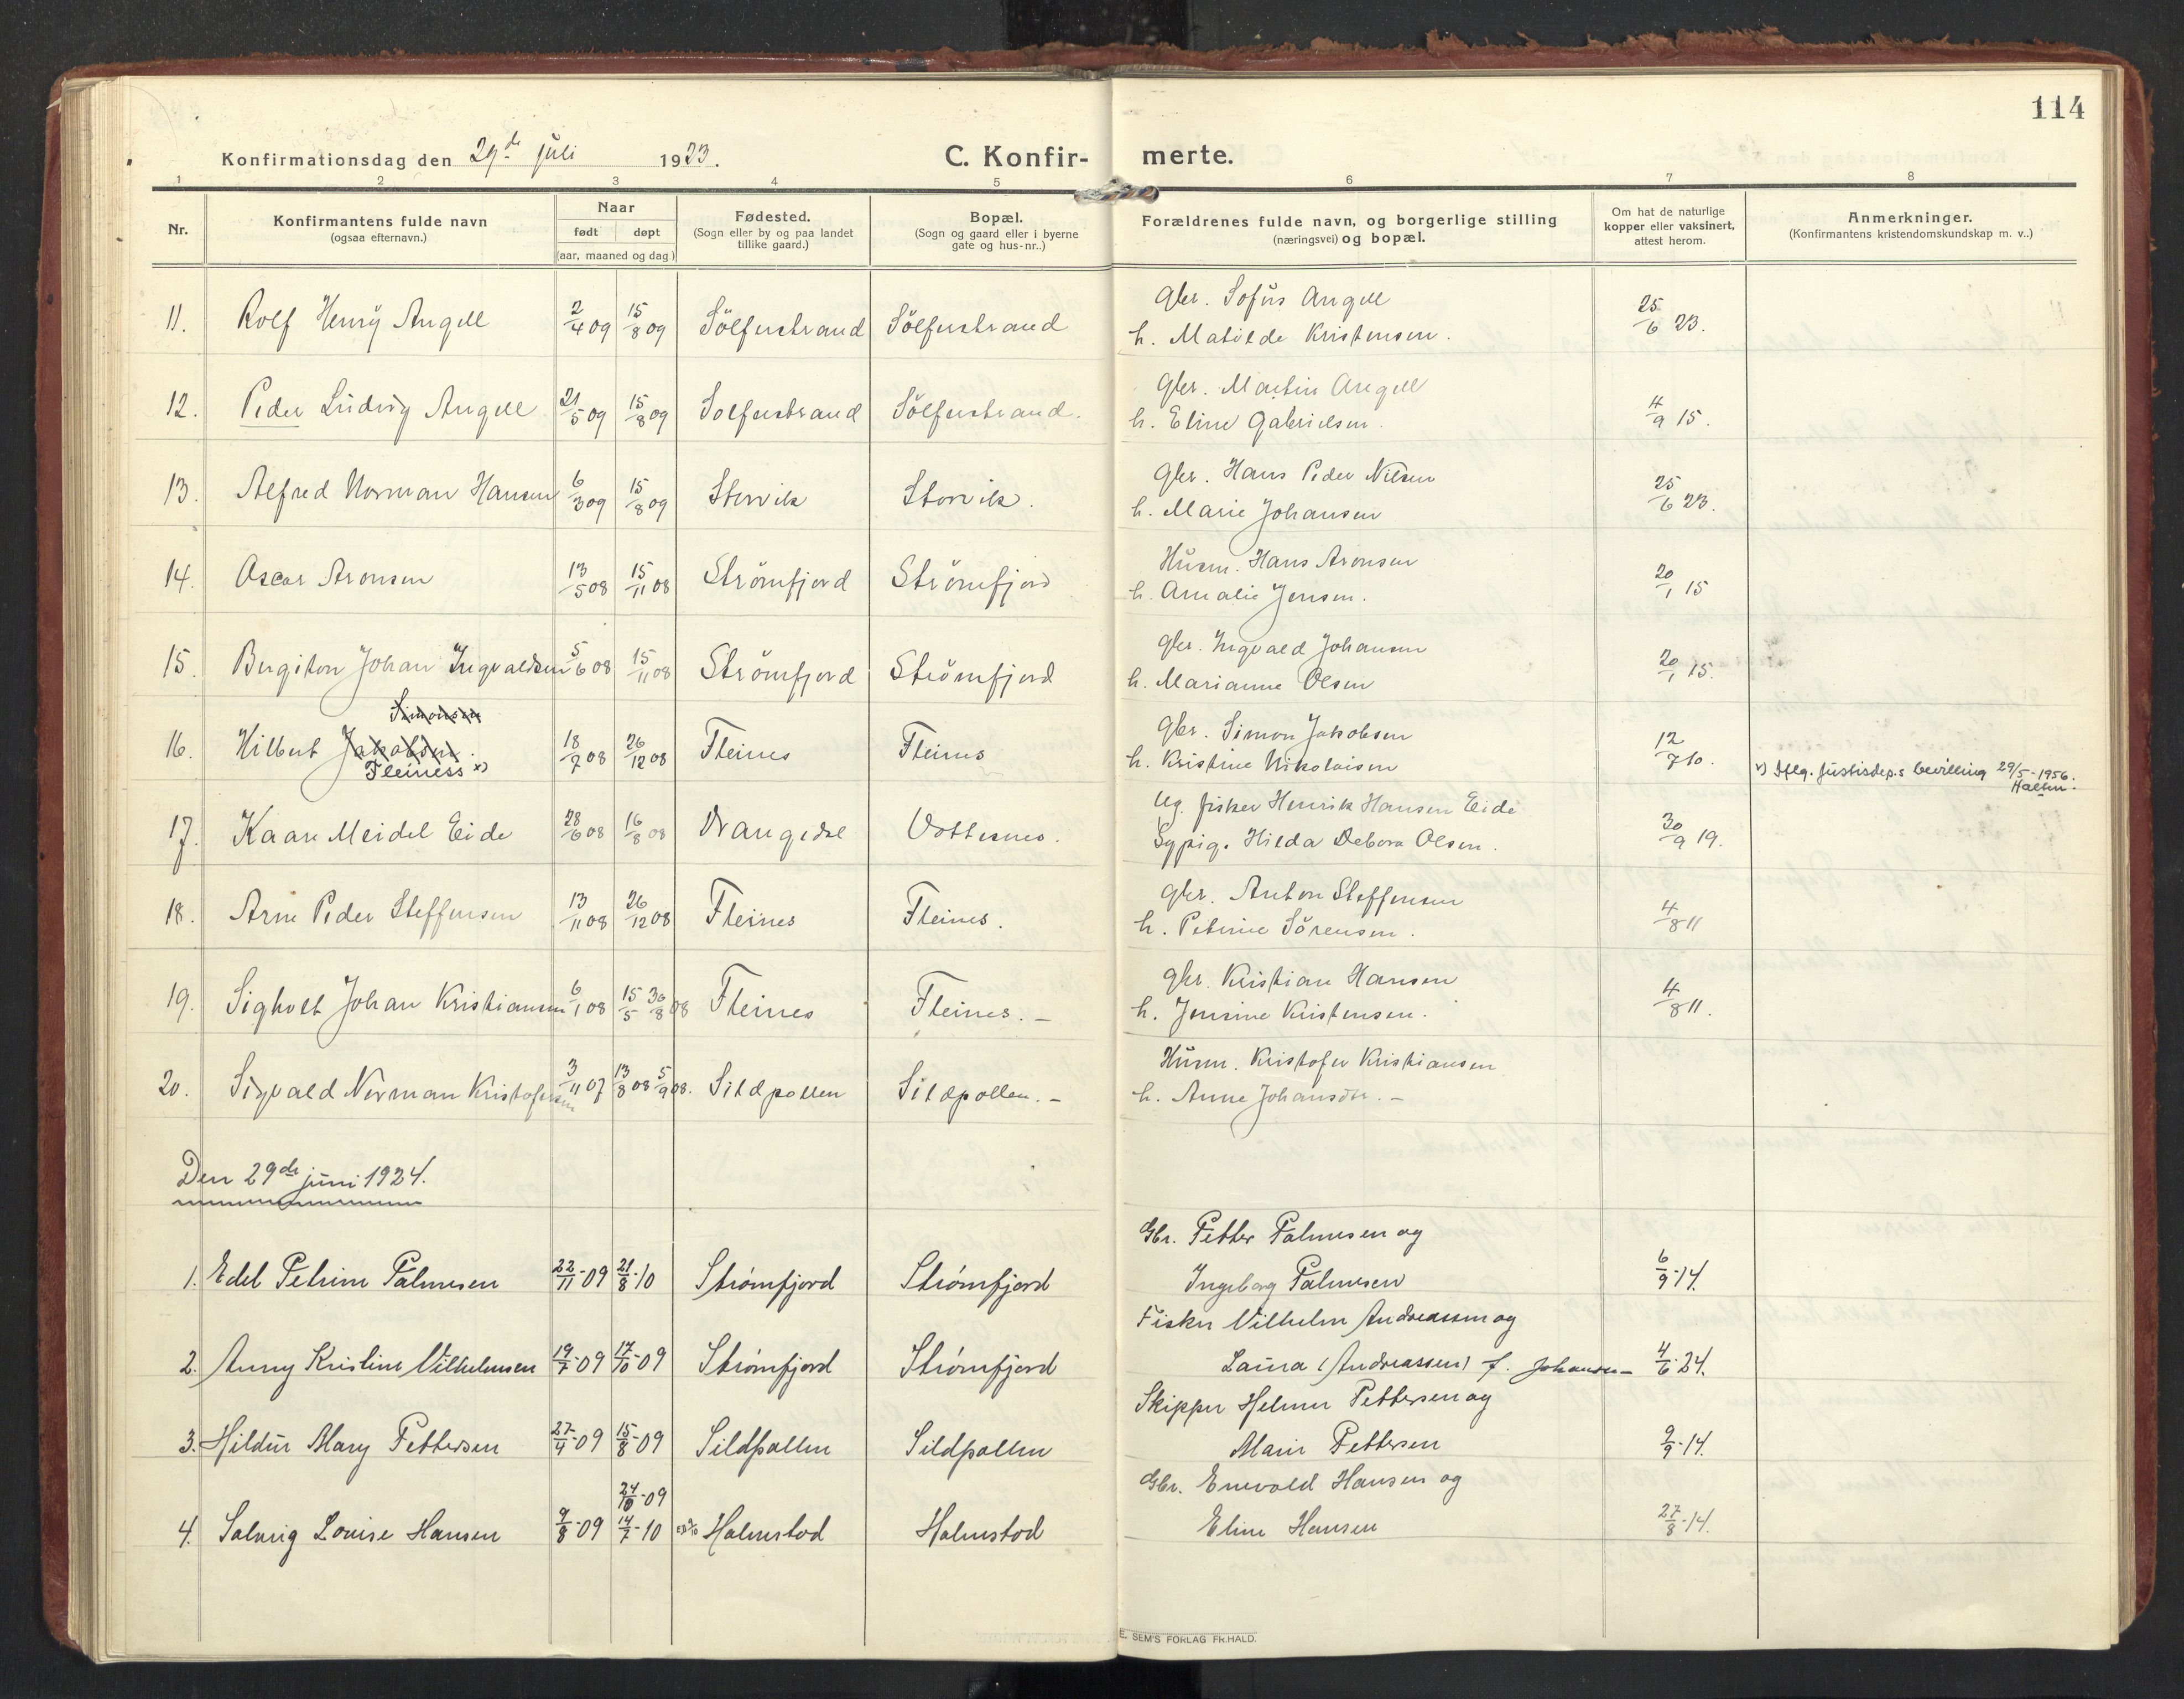 114
Konfirmationsdag den 29de juli 1923.
C. Konfir- merte.
1 2 3 4 5 6 7 8
Nr.
Konfirmantens fulde navn
(ogsaa efternavn.)
Naar
født døpt
(aar, maaned og dag)
Fødested.
(Sogn eller by og paa landet
tillike gaard.)
Bopæl.
(Sogn og gaard eller i byerne
gate og hus-nr..)
Forældrenes fulde navn, og borgerlige stilling
(næringsvei) og bopæl.
Om hat de naturlige
kopper eller vaksinert,
attest herom.
Anmerkninger.
(Konfirmantens kristendomskundskap m. v..)
Gbr. Sofus Angell
11. Rolf Henry Angell 2/4 09 15/8 09 Sölfustrand Sölfustrand 25/6 23.
h. Matilde Kristensen.
Gbr. Martin Angell
12. Peder Ludvig Angell 21/5 09 15/8 09 Solfustrand Sölfustrand. 4/9 15.
h. Eline Gabrielsen.
Gbr. Hans Peder Nilsen
13. Alfred Norman Hansen 6/3 09 15/8 09 Storvik Storvik. 25/6 23.
h. Marie Johansen
Husm. Hans Aronsen
14. Oscar Aronsen 13/5 08 15/11 08 Strömfjord Strömfjord 20/1 15
h. Amalie Jensen.
Gbr. Ingvald Johansen
15. Bergiton Johan Ingvaldsen 5/6 08 15/11 08 Strömfjord Strömfjord 20/1 15.
h. Marianne Olsen
Simonsen
Gbr. Simon Jakobsen
16. Hilbert Jakobsen. 18/7 08 26/12 08 Fleines Fleines 12/7 10.
h. Kristine Nikolaisen
Fleiness x)
x) Iflg. Justisdep.s bevilling 29/5-1956.
Halten.
Ug. fisker Henrik Hansen Eide
17. Kaare Meidel Eide 28/6 08 16/8 08 Drangedal Vottesnes. 30/9 19.
Sypig. Hilda Debora Olsen.
Gbr. Anton Steffensen
18. Arne Peder Steffensen 13/11 08 26/12 08 Fleines Fleines. 4/8 11
h. Petrine Sörensen.
Gbr. Kristian Hansen
19. Sigholt Johan Kristiansen 6/1 08 15/5 30/8 08 Fleines Fleines. - 4/8 11.
h. Jensine Kristensen.
Husm. Kristofer Kristiansen
20. Sigvald Norman Kristofersen 3/11 07 13/8 08 5/9 08. Sildpollen Sildpollen. -
h. Anne Johansdtr. -
Den 29de juni 1924.
Gbr. Petter Palmesen og
1. Edel Petrine Palmesen 22/11-09 21/8-10 Strømfjord Strømfjord 6/9-14.
Ingeborg Palmesen
Fisker Vilhelm Andreassen og
2. Anny Kristine Vilhelmsen 19/7-09 17/10-09 Strømfjord Strømfjord 4/6-24.
Laura (Andreassen) f. Johansen-
Skipper Helmer Pettersen og
3. Hildur Mary Pettersen 27/4-09 15/8-09 Sildpollen Sildpollen 9/9-14.
Marie Pettersen
24/10-09
Gbr. Enevold Hansen og
4. Solveig Louise Hansen 9/8-09 14/7-10 Holmstod Holmstod 27/8-14.
Eline Hansen
E. SEM'S FORLAG FR.HALD.